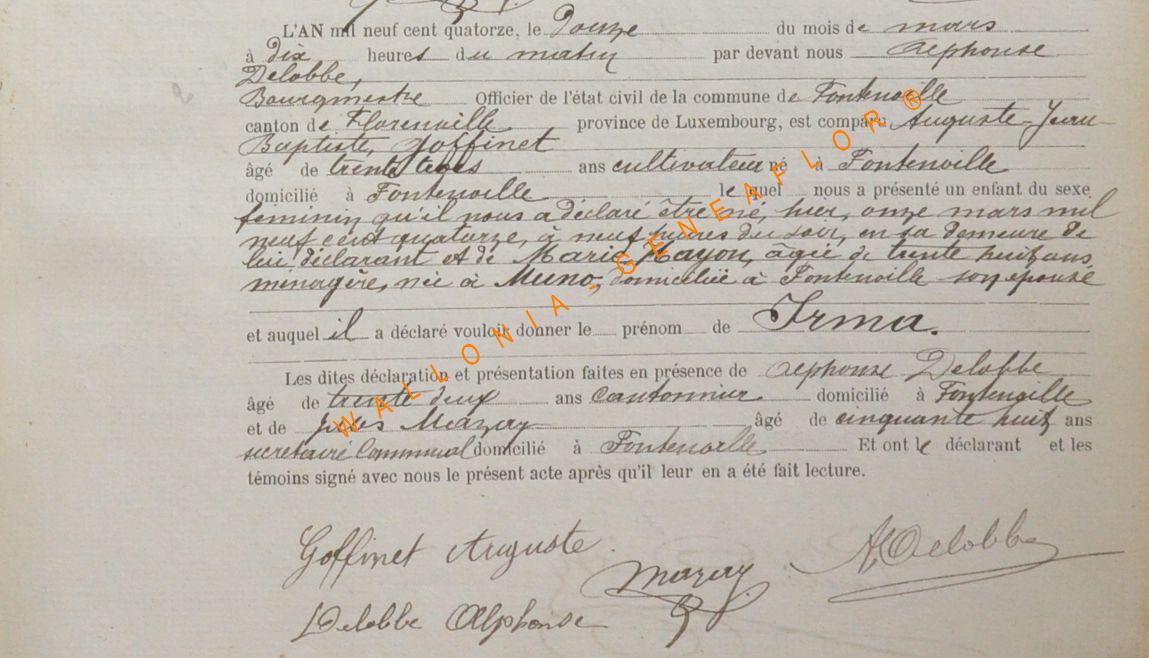 L'AN mil neuf cent quatorze, le Douze du mois de mars
à dix heures du matin par devant nous Alphonse
Delobbe,
Bourgmestre Officier de l'état civil de la commune de Fontenoille
canton de Florenville province de Luxembourg, est comparu Auguste-Jean-
Baptiste, Goffinet
âgé de trente trois ans cultivateur né à Fontenoille
domicilié à Fontenoille le quel nous a présenté un enfant du sexe
féminin qu'il nous a déclaré être né, hier, onze mars mil
neuf cent quatorze, à neuf heures du soir, en sa demeure de
lui déclarant et de Marie, Hayon, âgée de trente huit ans
ménagère, née à Muno, domiciliée à Fontenoille son épouse
et auquel il a déclaré vouloir donner le prénom de Irma.
Les dites déclaration et présentation faites en présence de Alphonse Delobbe
âgé de trente deux ans Cantonnier domicilié à Fontenoille
et de Jules Mazay âgé de cinquante huit ans
secrétaire Communal domicilié à Fontenoille Et ont le déclarant et les
témoins signé avec nous le présent acte après qu'il leur en a été fait lecture.
WALLONIA - GENEAFLOR ®
Goffinet Auguste
Mazay
ADelobbe
Delobbe Alphonse